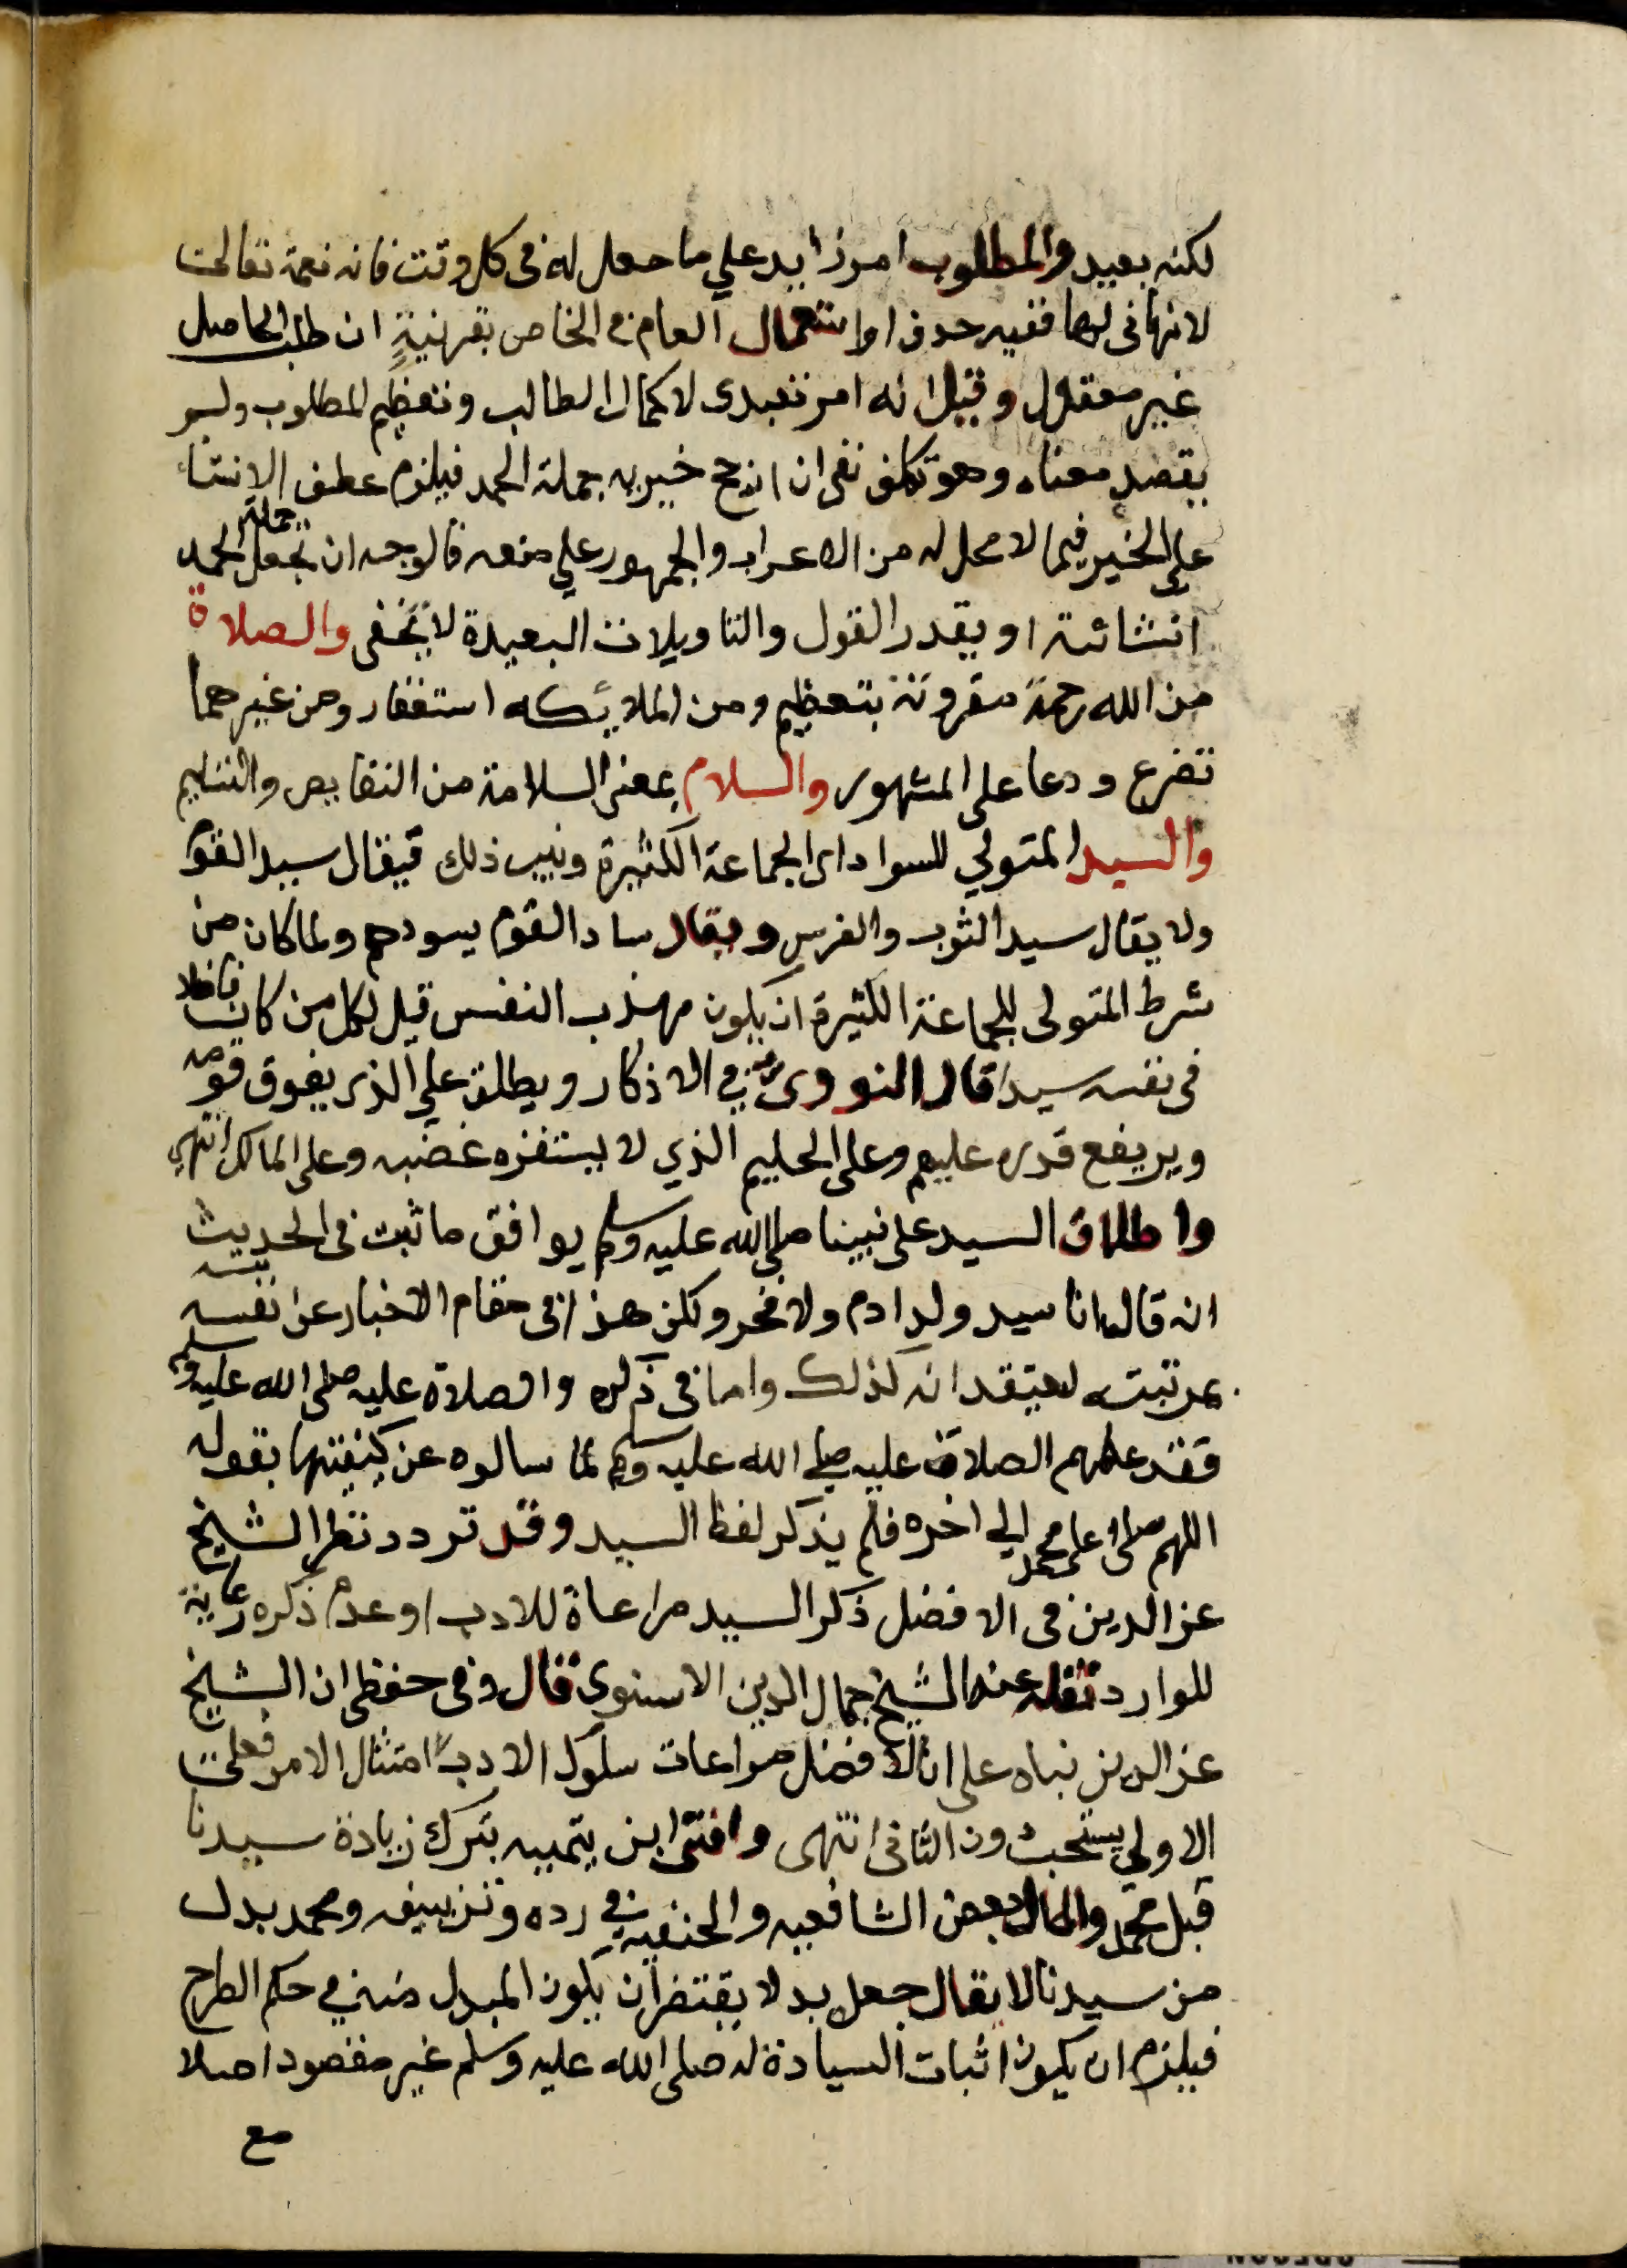 لكنه بعيد والمطلوب امر زايد على ما حصل له في كل وقت فانه نعمه تعالى
لانهاية لها ففيه حذف او استعمال العام في الخاص بقرينة ان طلب الحاصل
غير معقول وقيل انه امر تعبدى لا كمال الطالب وتعظيم المطلوب ولو
يقصد معناه وهو تكلف نفي ان رجح خبريه جملة الحمد فيلزم عطف الانشاء
على الخبر فيما لا محل له من الاعراب والجمهور على منعه فالوجه ان تجعل جملة الحمد
انشائية او يقدر القول والتاويلات البعيدة لا تخفى والصلاة
من الله رحمة مقرونة بتعظيم ومن الملايكه استغفار ومن غيرهما
تضرع ودعا على المشهور والسلام بمعنى السلامة من النقايص والتسليم
والسيد المتولي للسواد اى الجماعة الكثيرة ونسب ذلك فيقال سيد القوم
ولا يقال سيد الثوب والفرس ويقال ساد القوم يسودهم ولما كان من
شرط المتولى للجماعة الكثيرة ان يكون مهذب النفس قيل لكل من كان فاضلا
فى نفسه سيدا قال النووى في الاذكار ويطلق على الذى يفوق قومه
ويرتفع قدره عليهم وعلى الحليم الذي لا يستفزه غضبه وعلى المالك انتهى
واطلاق السيد على نبينا صلى الله عليه وسلم يوافق ما ثبت فى الحديث
انه قال انا سيد ولد ادم ولا فخر ولكن هذا فى مقام الاخبار عن نفسه
بمرتبته ليعتقد انه كذلك واما فى ذكره والصلاة عليه صلى الله عليه وسلم
فقد علمهم الصلاة عليه صلى الله عليه وسلم لما سالوه عن كيفيتها بقوله
اللهم صلى على محمد الى اخره فلم يذكر لفظ السيد وقد تردد نظر الشيخ
عز الدين فى الافضل ذكر السيد مراعاة للادب او عدم ذكره رعاية
للوارد نقله عنه الشيخ جمال الدين الاسنوى قال وفى حفظى ان الشيخ
عز الدين بناه على ان الافضل مراعات سلوك الادب او امتثال الامر فعلى
الاولي يستحب دون الثانى انتهى وافتى ابن تيميه بترك زيادة سيدنا
قبل محمد واطال بعض الشافعيه والحنفيه في رده وتزييفه ومحمد بدل
من سيدنا لا يقال جعله بدلا يقتضى ان يكون المبدل منه في حكم الطرح
فيلزم ان يكون اثبات السيادة له صلى الله عليه وسلم غير مقصود اصلا
مع